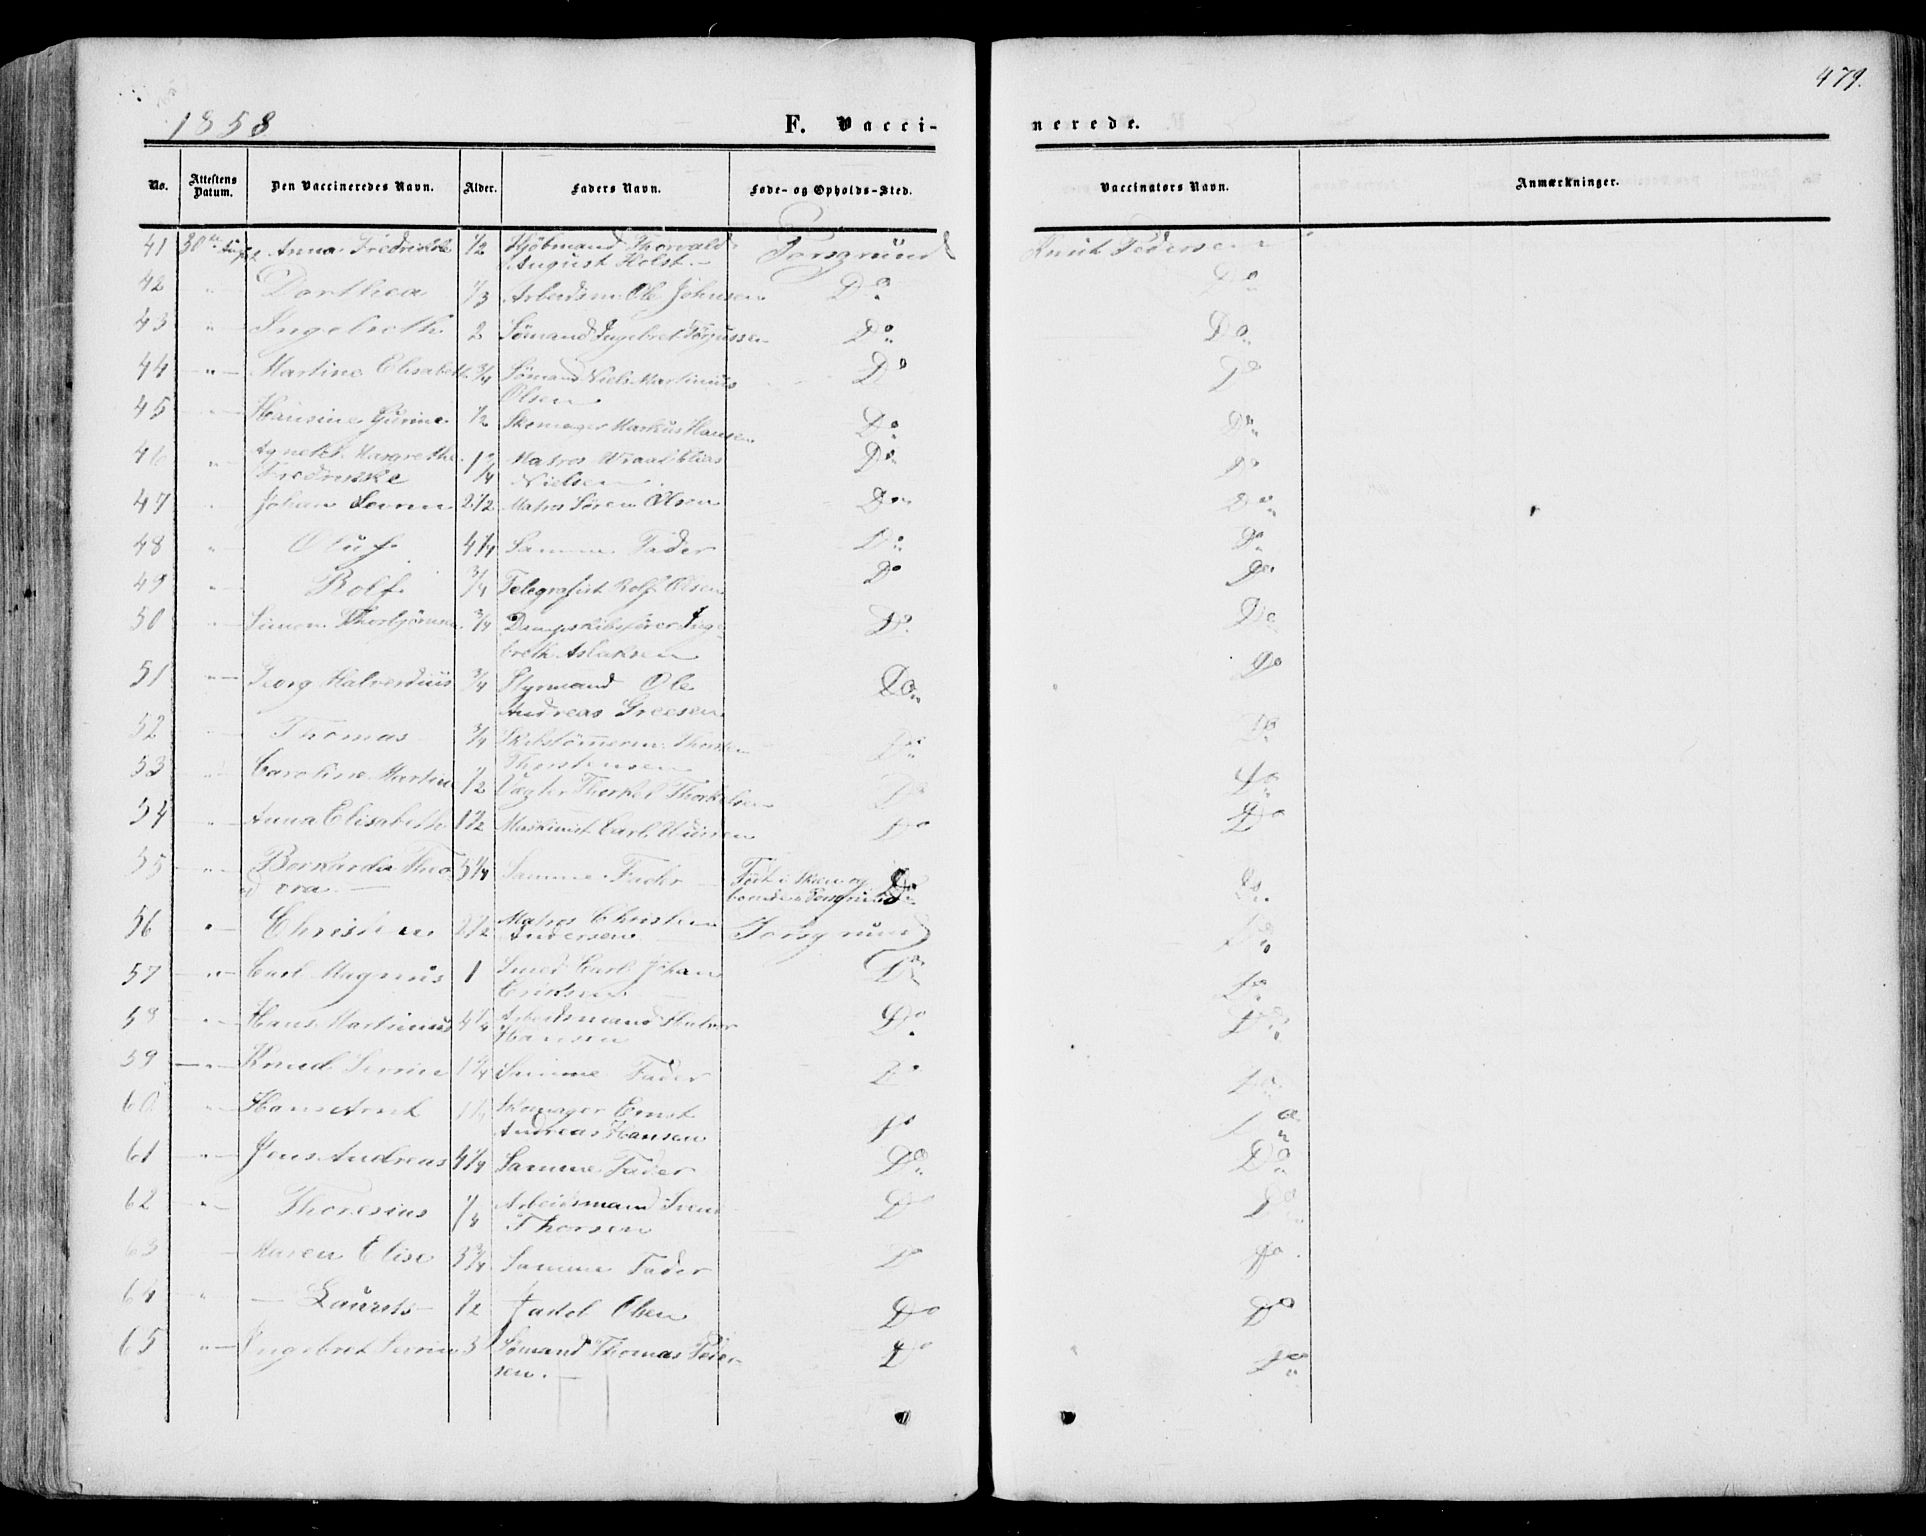 479.
1858 F. Vacci- nerede.
No. Attestens Datum. Den Vaccineredes Navn. Alder. Faders Navn. Føde- og Opholds-Sted. Vaccinatørs Navn. Anmærkninger.
41 30te Anna Fredrikke 1/2 Kjöbmand Thorvald Porsgrund Knut Pedersen
August Holst.
42 " Dorthea 1/3 Arbeidsm. Ole Johnsen Do Do
43 " Ingeborth 2 Sömand Ingebret Do Do
44 " Martine Elisabeth 3/4 Sömand Niels Martinius Do Do
Olsen
45 Hansine Gurine 1/2 Skomager Markus Hansen Do Do
46 " Agnete Margrethe 1 1/4 Matros Elias Do Do
Fredrikke Nielsen
47 " Johan 2 1/2 Matros Sören Olsen Do Do
48 " Oluf 4 1/4 Samme Fader Do Do
49 " Rolf 3/4 Telegrafist Rolf Olsen Do Do
50 " Simon Thorbjörnsen 3/4 Dampskibsförer Inge- Do Do
breth Aslaksen
51 " Georg Halvordius 3/4 Styrmand Ole Do Do
Andreas Greesen
52 " Thomas 3/4 Skibstömmerm. Thorsten Do Do
Thorstensen
53 " Caroline Martine 1/2 Vægter Thorkel Thorkelsen Do Do
54 " Anna Elisabeth 1 1/2 Maskinist Carl Do Do
55 " Bernharda Theo- 5 1/4 Samme Fader Födt i Skien og Do
dora boende i Porsgrund
56 " Christian 2 1/2 Matros Christian Porsgrund Do
Andersen
57 " Carl Magnus 1 Smed Carl Johan Do Do
Eriksen
58 " Hans Martinius 4 1/4 Arbeidsmand Halvor Do Do
Hansen
59 " Knud Severin 1 1/4 Samme Fader Do Do
60 " Hans Arnt 1 1/4 Skomager Ernst Do Do
Andreas Hansen
61 " Jens Andreas 4 1/4 Samme Fader Do Do
62 " Thoresius Arbeidsmand Do Do
Thorsen
63 Maren Elise 3 3/4 Samme Fader Do Do
64 " Laurits 1/2 Jakob Olsen Do Do
65 " Ingebret Severin 3 Sömand Thomas Peder- Do Do
sen.